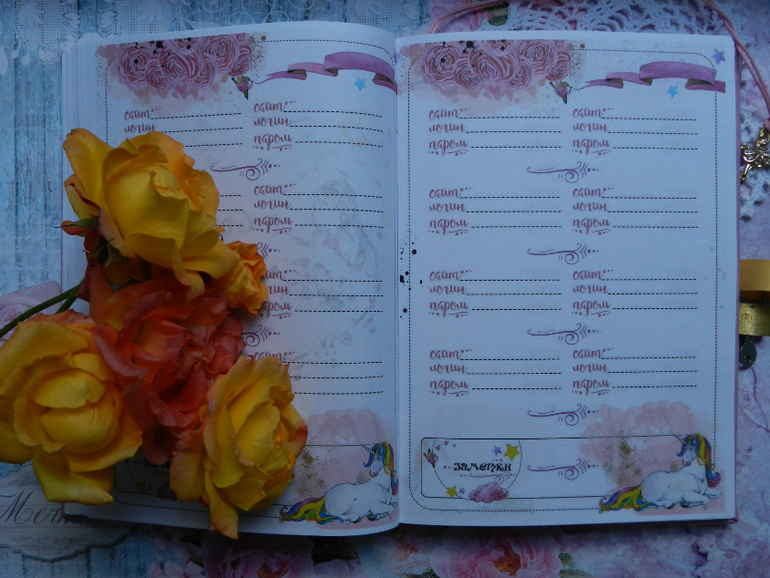 сайт сайт
логин логин
пароль пароль
сайт
логин
пароль
сайт
логин
пароль
сайт
сайт сайт
логин логин
пароль пароль
сайт сайт
логин логин
пароль пароль
сайт сайт
логин логин
пароль пароль
сайт сайт
логин логин
пароль пароль
заметки